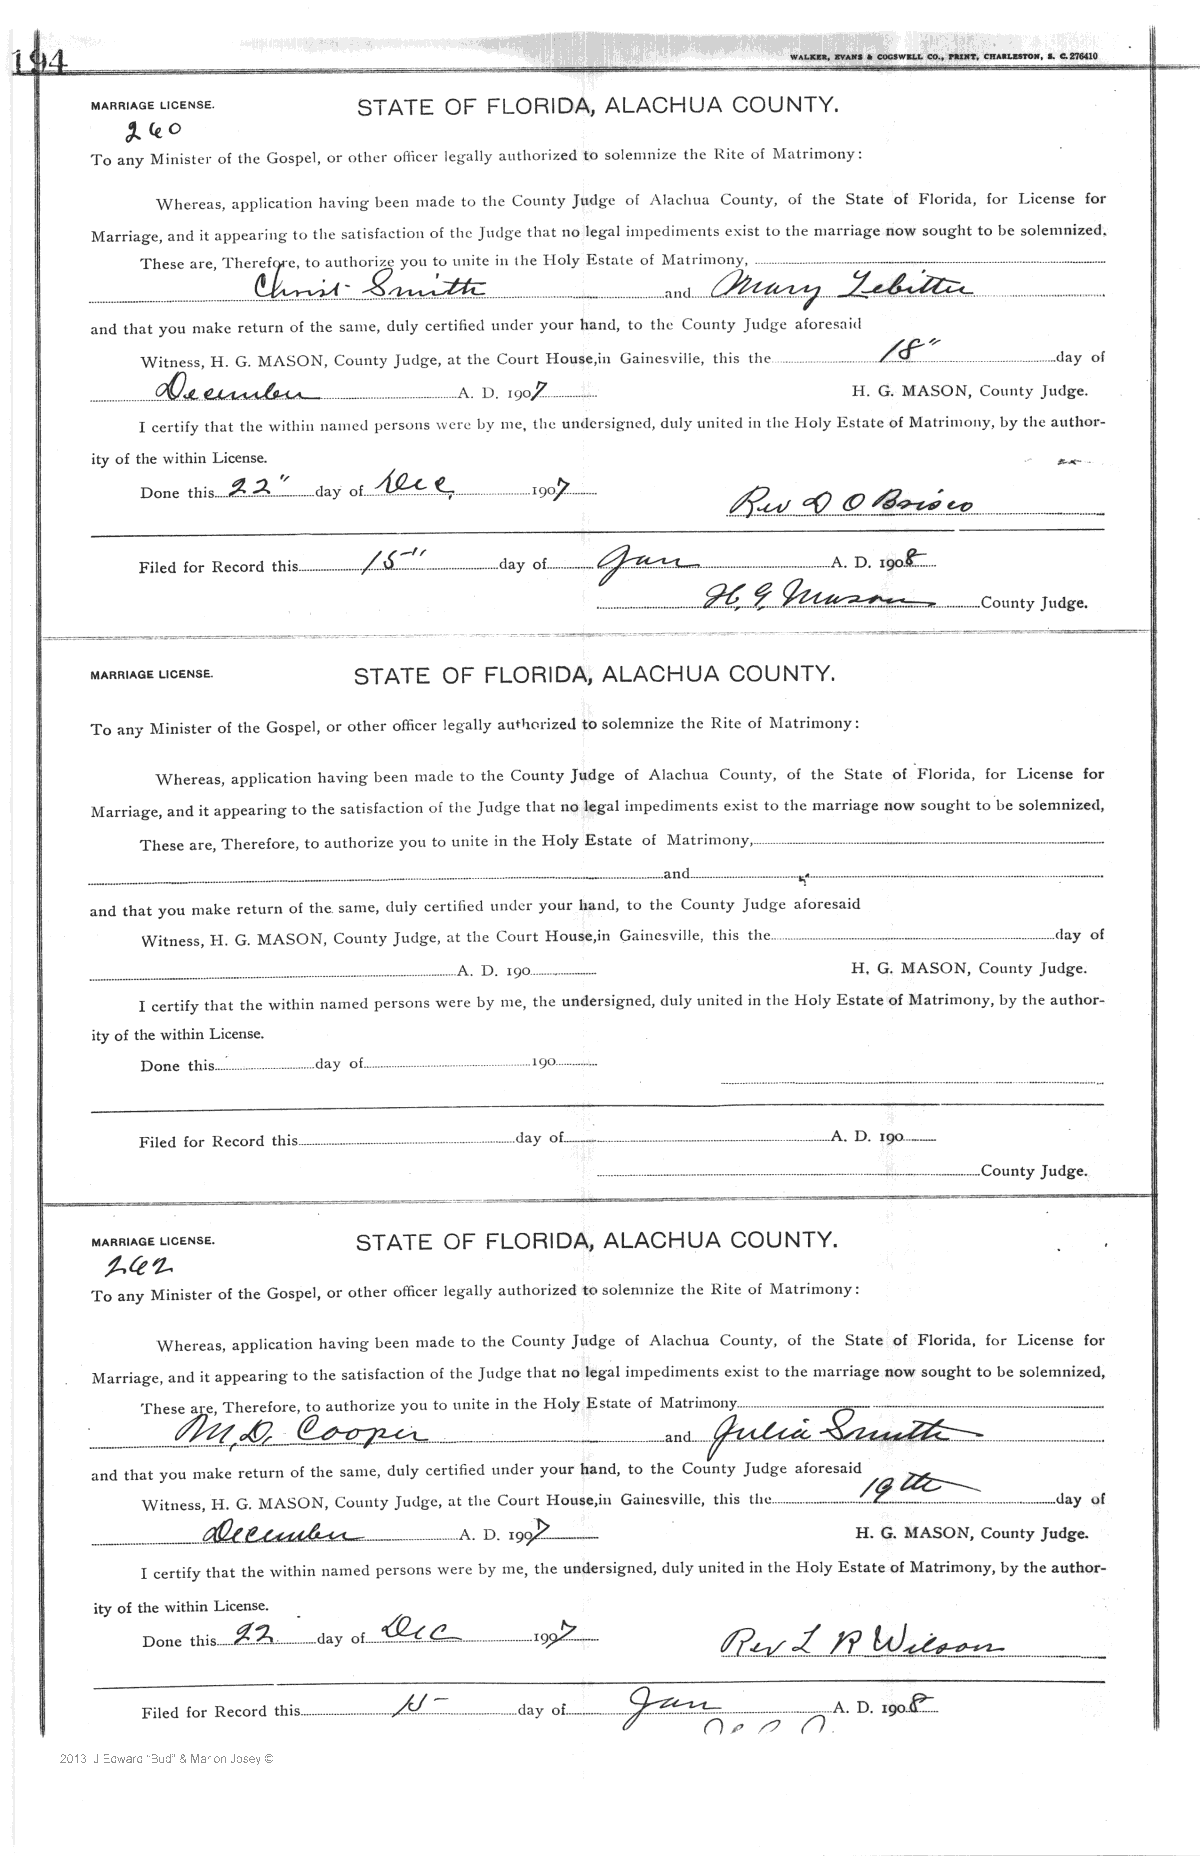 194
WALKER, EVANS & COGSWELL CO., PRINT, CHARLESTON, S. C. 276410
MARRIAGE LICENSE. STATE OF FLORIDA, ALACHUA COUNTY.
260
To any Minister of the Gospel, or other officer legally authorized to solemnize the Rite of Matrimony:
Whereas, application having been made to the County Judge of Alachua County, of the State of Florida, for License for
Marriage, and it appearing to the satisfaction of the Judge that no legal impediments exist to the marriage now sought to be solemnized.
These are, Therefore, to authorize you to unite in the Holy Estate of Matrimony,
Christ Smith and Mary
and that you make return of the same, duly certified under your hand, to the County Judge aforesaid
Witness, H. G. MASON, County Judge, at the Court House,in Gainesville, this the 18" day of
December A. D. 1907 H. G. MASON, County Judge.
I certify that the within named persons were by me, the undersigned, duly united in the Holy Estate of Matrimony, by the author-
ity of the within License.
Done this 22" day of Dec, 1907
Rev D O Brisco
Filed for Record this 15" day of Jan A. D. 1908
H. G. Mason County Judge.
MARRIAGE LICENSE. STATE OF FLORIDA, ALACHUA COUNTY.
To any Minister of the Gospel, or other officer legally authorized to solemnize the Rite of Matrimony:
Whereas, application having been made to the County Judge of Alachua County, of the State of Florida, for License for
Marriage, and it appearing to the satisfaction of the Judge that no legal impediments exist to the marriage now sought to be solemnized,
These are, Therefore, to authorize you to unite in the Holy Estate of Matrimony,
and
and that you make return of the same, duly certified under your hand, to the County Judge aforesaid
Witness, H. G. MASON, County Judge, at the Court House,in Gainesville, this the day of
A. D. 190 H. G. MASON, County Judge.
I certify that the within named persons were by me, the undersigned, duly united in the Holy Estate of Matrimony, by the author-
ity of the within License.
Done this day of 190
Filed for Record this day of A. D. 190
County Judge.
MARRIAGE LICENSE. STATE OF FLORIDA, ALACHUA COUNTY.
262
To any Minister of the Gospel, or other officer legally authorized to solemnize the Rite of Matrimony:
Whereas, application having been made to the County Judge of Alachua County, of the State of Florida, for License for
Marriage, and it appearing to the satisfaction of the Judge that no legal impediments exist to the marriage now sought to be solemnized,
These are, Therefore, to authorize you to unite in the Holy Estate of Matrimony
M. D. Cooper and Julia Smith
and that you make return of the same, duly certified under your hand, to the County Judge aforesaid
Witness, H. G. MASON, County Judge, at the Court House,in Gainesville, this the 19th day of
December A. D. 1907 H. G. MASON, County Judge.
I certify that the within named persons were by me, the undersigned, duly united in the Holy Estate of Matrimony, by the author-
ity of the within License.
Done this 22 day of Dec 1907
Rev L R Wilson
Filed for Record this 15 day of Jan A. D. 1908
2013 J Edward "Bud" & Marion Josey ©